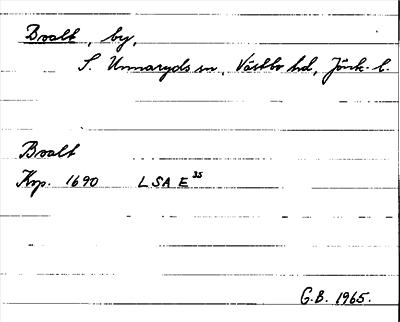 Bvalt, by,
S. Unnaryds sn, Västbo hd, Jönk. l.
Bvalt
Krp. 1690 LSA E 35
G.B. 1965.